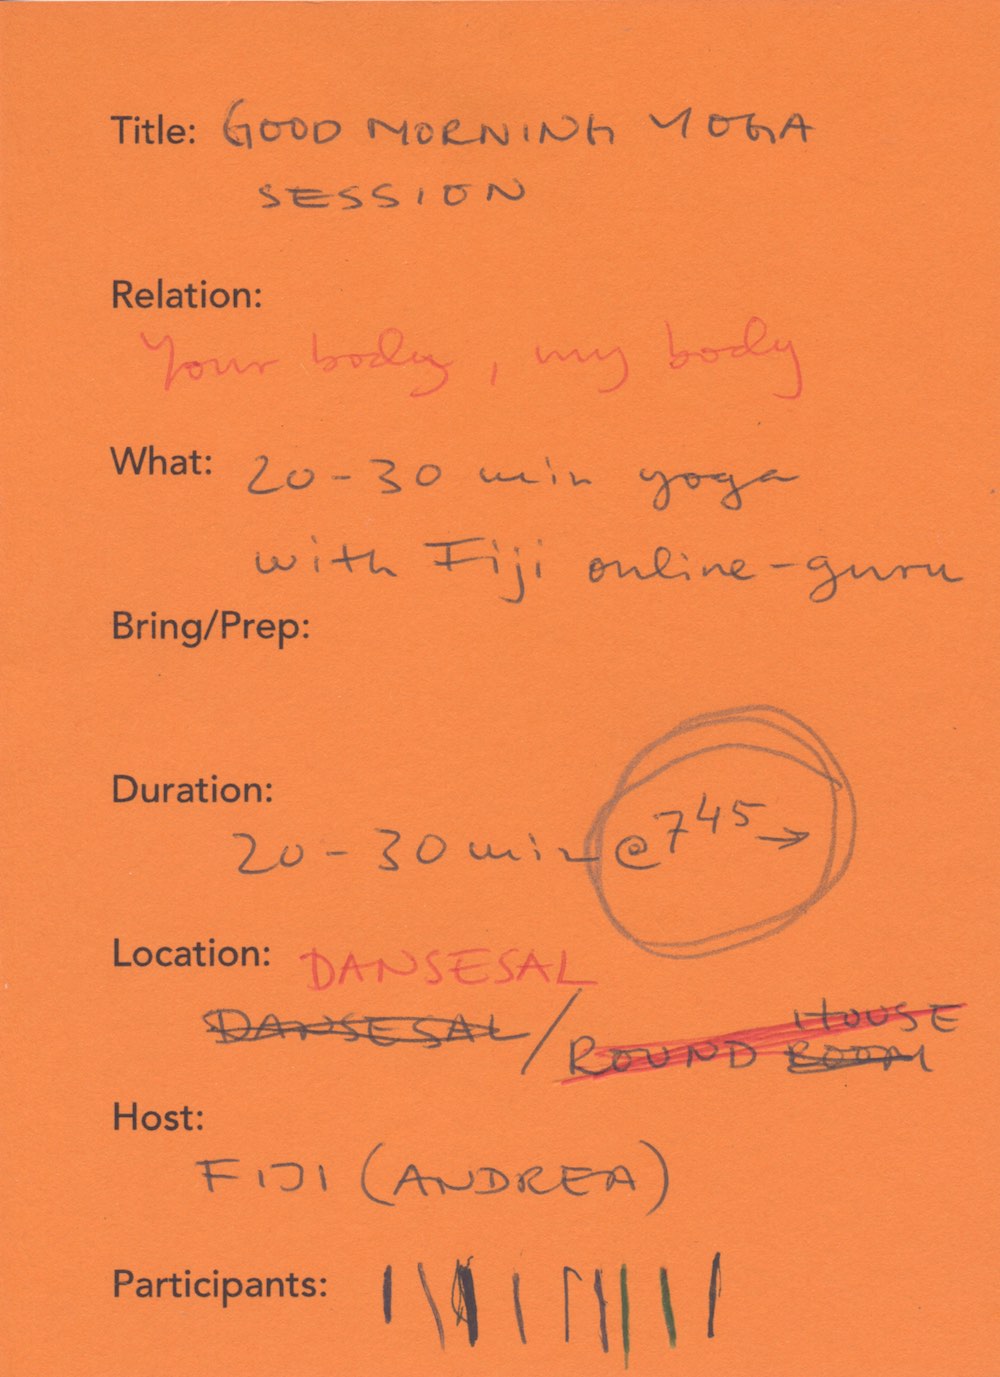 Title: GOOD MORNING YOGA
SESSION
Relation:
Your body, my body
What: 20-30 min yoga
with Fiji online-guru
Bring/Prep:
Duration:
20-30 min @ 7 45 →
Location: DANSESAL
DANSESAL / ROUND ROOM HOUSE
Host:
FIJI (ANDREA)
Participants: